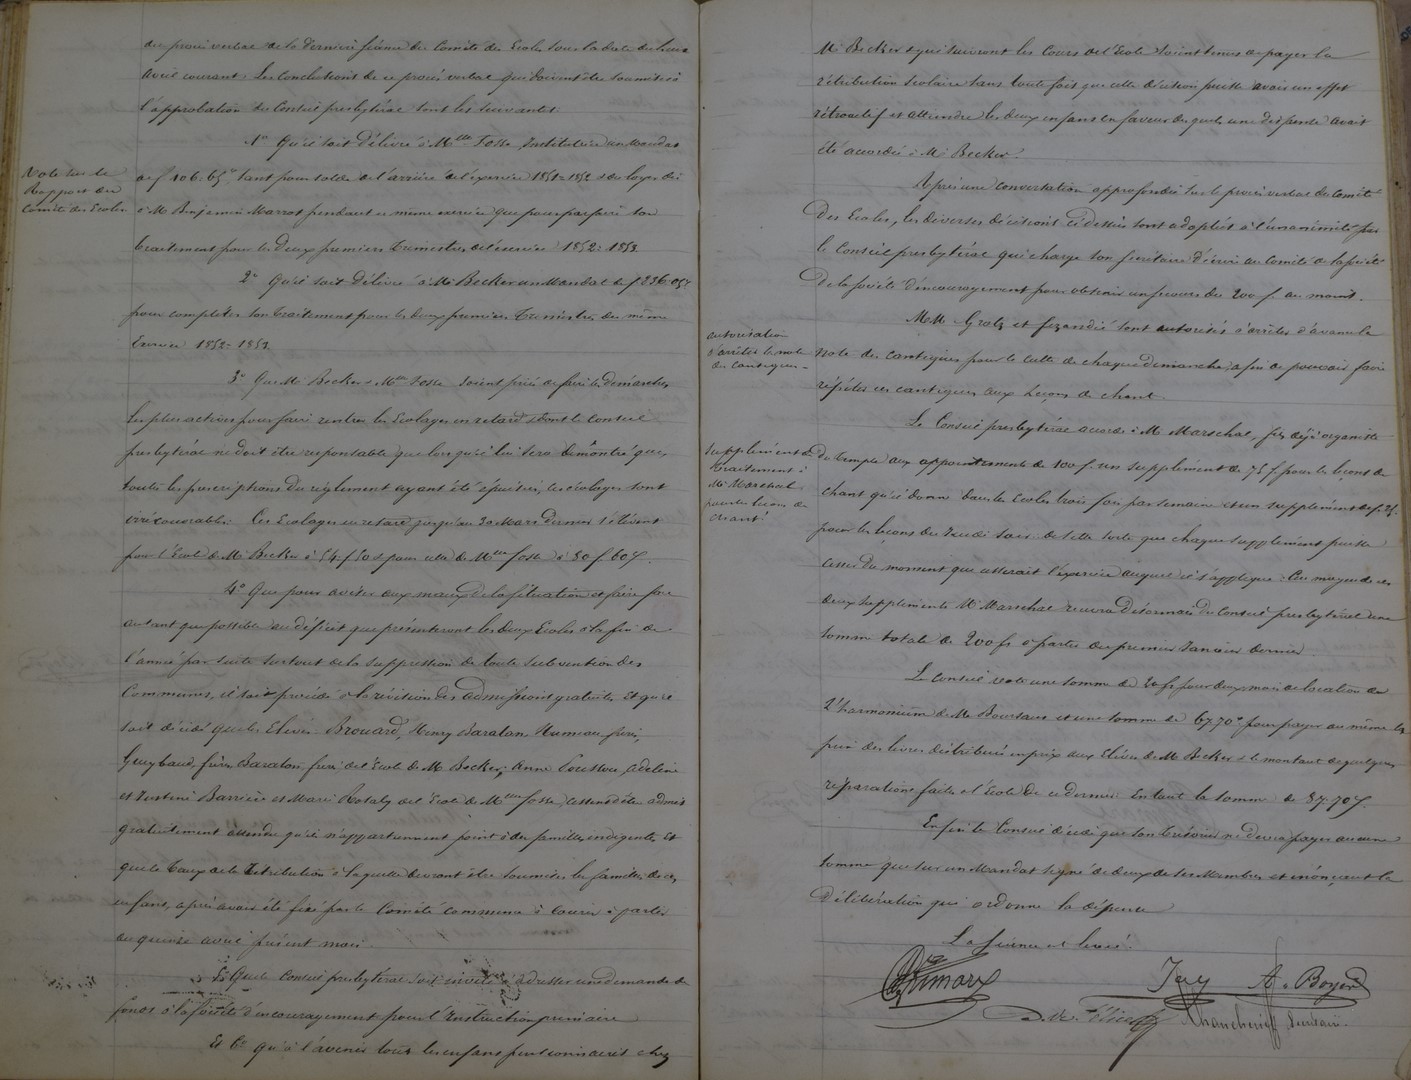 du procès verbal de la dernière séance du Comité des Ecoles sous la date du
avril courant. Les conclusions de ce procès verbal qui doivent être soumises à
l'approbation du Conseil presbytéral sont les suivantes
1º Qu'il soit délivré à Melle Fosse Institutrice un Mandat
Vote sur le
Rapport du
Comité des Ecoles
de f 106.65c tant pour solde de l'arriéré de l'exercice 1851-1852 du loyer dû
à M. Benjamin Marrot pendant ce même exercice que pour parfaire son
traitement pour les deux premiers trimestres de l'exercice 1852-1853.
2º Qu'il soit délivré à M. Becker un Mandat de f 236.05c
pour compléter son traitement pour les deux premiers trimestres du même
Exercice 1852-1853.
3º Que M. Becker & Melle Fosse soient priés de faire les démarches
les plus actives pour faire rentrer les Ecolages en retard dont le Conseil
presbytéral ne doit être responsable que lorsqu'il lui sera démontré que,
toutes les prescriptions du règlement ayant été épuisées, les écolages sont
irrécouvrables. Les Ecolages en retard jusqu'au 30 Mars dernier s'élèvent
pour l'Ecole de M. Becker à 54 f 50 & pour celle de Melle Fosse à 30 f 60 c.
4º Que pour aviser aux maux de la situation et faire face
autant que possible au déficit que présenteront les deux Ecoles à la fin de
l'année par suite surtout de la suppression de toute subvention des
Communes, il soit procédé à la révision des admissions gratuites et qu'il
soit décidé que les Elèves Brouard, Henry Baralon, Humeau frères,
Guybaud frères, Baralon frères de l'Ecole de M. Becker; Anne Adeline
et Justine Barrière et Marie Rosaly de l'Ecole de Melle Fosse cessent d'être admis
gratuitement attendu qu'ils n'appartiennent point à des familles indigentes et
que le taux de la rétribution à laquelle devront être soumises les familles de ces
enfans, après avoir été fixé par le Comité commence à courir à partir
du quinze avril présent mois.
5º Que le Conseil presbytéral soit invité à adresser une demande de
fonds à la Société d'encouragement pour l'Instruction primaire
Et 6º qu'à l'avenir tous les enfans pensionnaires chez
M. Becker & qui suivront les Cours de l'Ecole soient tenus de payer la
rétribution scolaire sans toute fois que cette décision puisse avoir un effet
rétroactif et atteindre les deux enfans en faveur desquels une dispense avait
été accordée à M. Becker.
Après une conversation approfondie sur le procès verbal du Comité
des Ecoles, les diverses décisions ci dessus sont adoptées à l'unanimité par
le Conseil presbytéral qui charge son secrétaire d'écrire au Comité de la société
de la société d'encouragement pour obtenir un secours de 200 f. au moins.
autorisation
d'arrêter la note
des Cantiques.
M.M. Gratz et sont autorisés à arrêter d'avance la
note des cantiques pour le culte de chaque dimanche, afin de pouvoir faire
répéter ces cantiques aux leçons de chant.
Supplément de
traitement à
M. Marschal
pour les leçons de
chant.
Le Conseil presbytéral accorde à M. Marschal, déjà organiste
du temple aux appointements de 100 f. un supplément de 75 f pour les leçons de
chant qu'il donne dans les Ecoles trois fois par semaine et un supplément de f. 25.
pour les leçons du Jeudi soir de telle sorte que chaque supplément puisse
cesser du moment que cesserait l'exercice auquel il s'applique. Au moyen de ces
deux suppléments M. Marschal recevra désormais du Conseil presbytéral une
somme totale de 200 fs à partir du premier Janvier dernier
Le Conseil vote une somme de 20 fs pour deux mois de location de
l'harmonium de M. Boursaus et une somme de 67.70c pour payer au même le
prix des livres distribués en prix aux Elèves de M. Becker & le montant de quelques
réparations faites à l'école de ce dernier. En tout la somme de 87.70 c.
Enfin le Conseil décide que son trésorier ne devra payer aucune
somme que sur un Mandat signé de deux de ses Membres et énonçant la
délibération qui ordonne la dépense
La séance est levée.
A. Boyer
secrétaire.